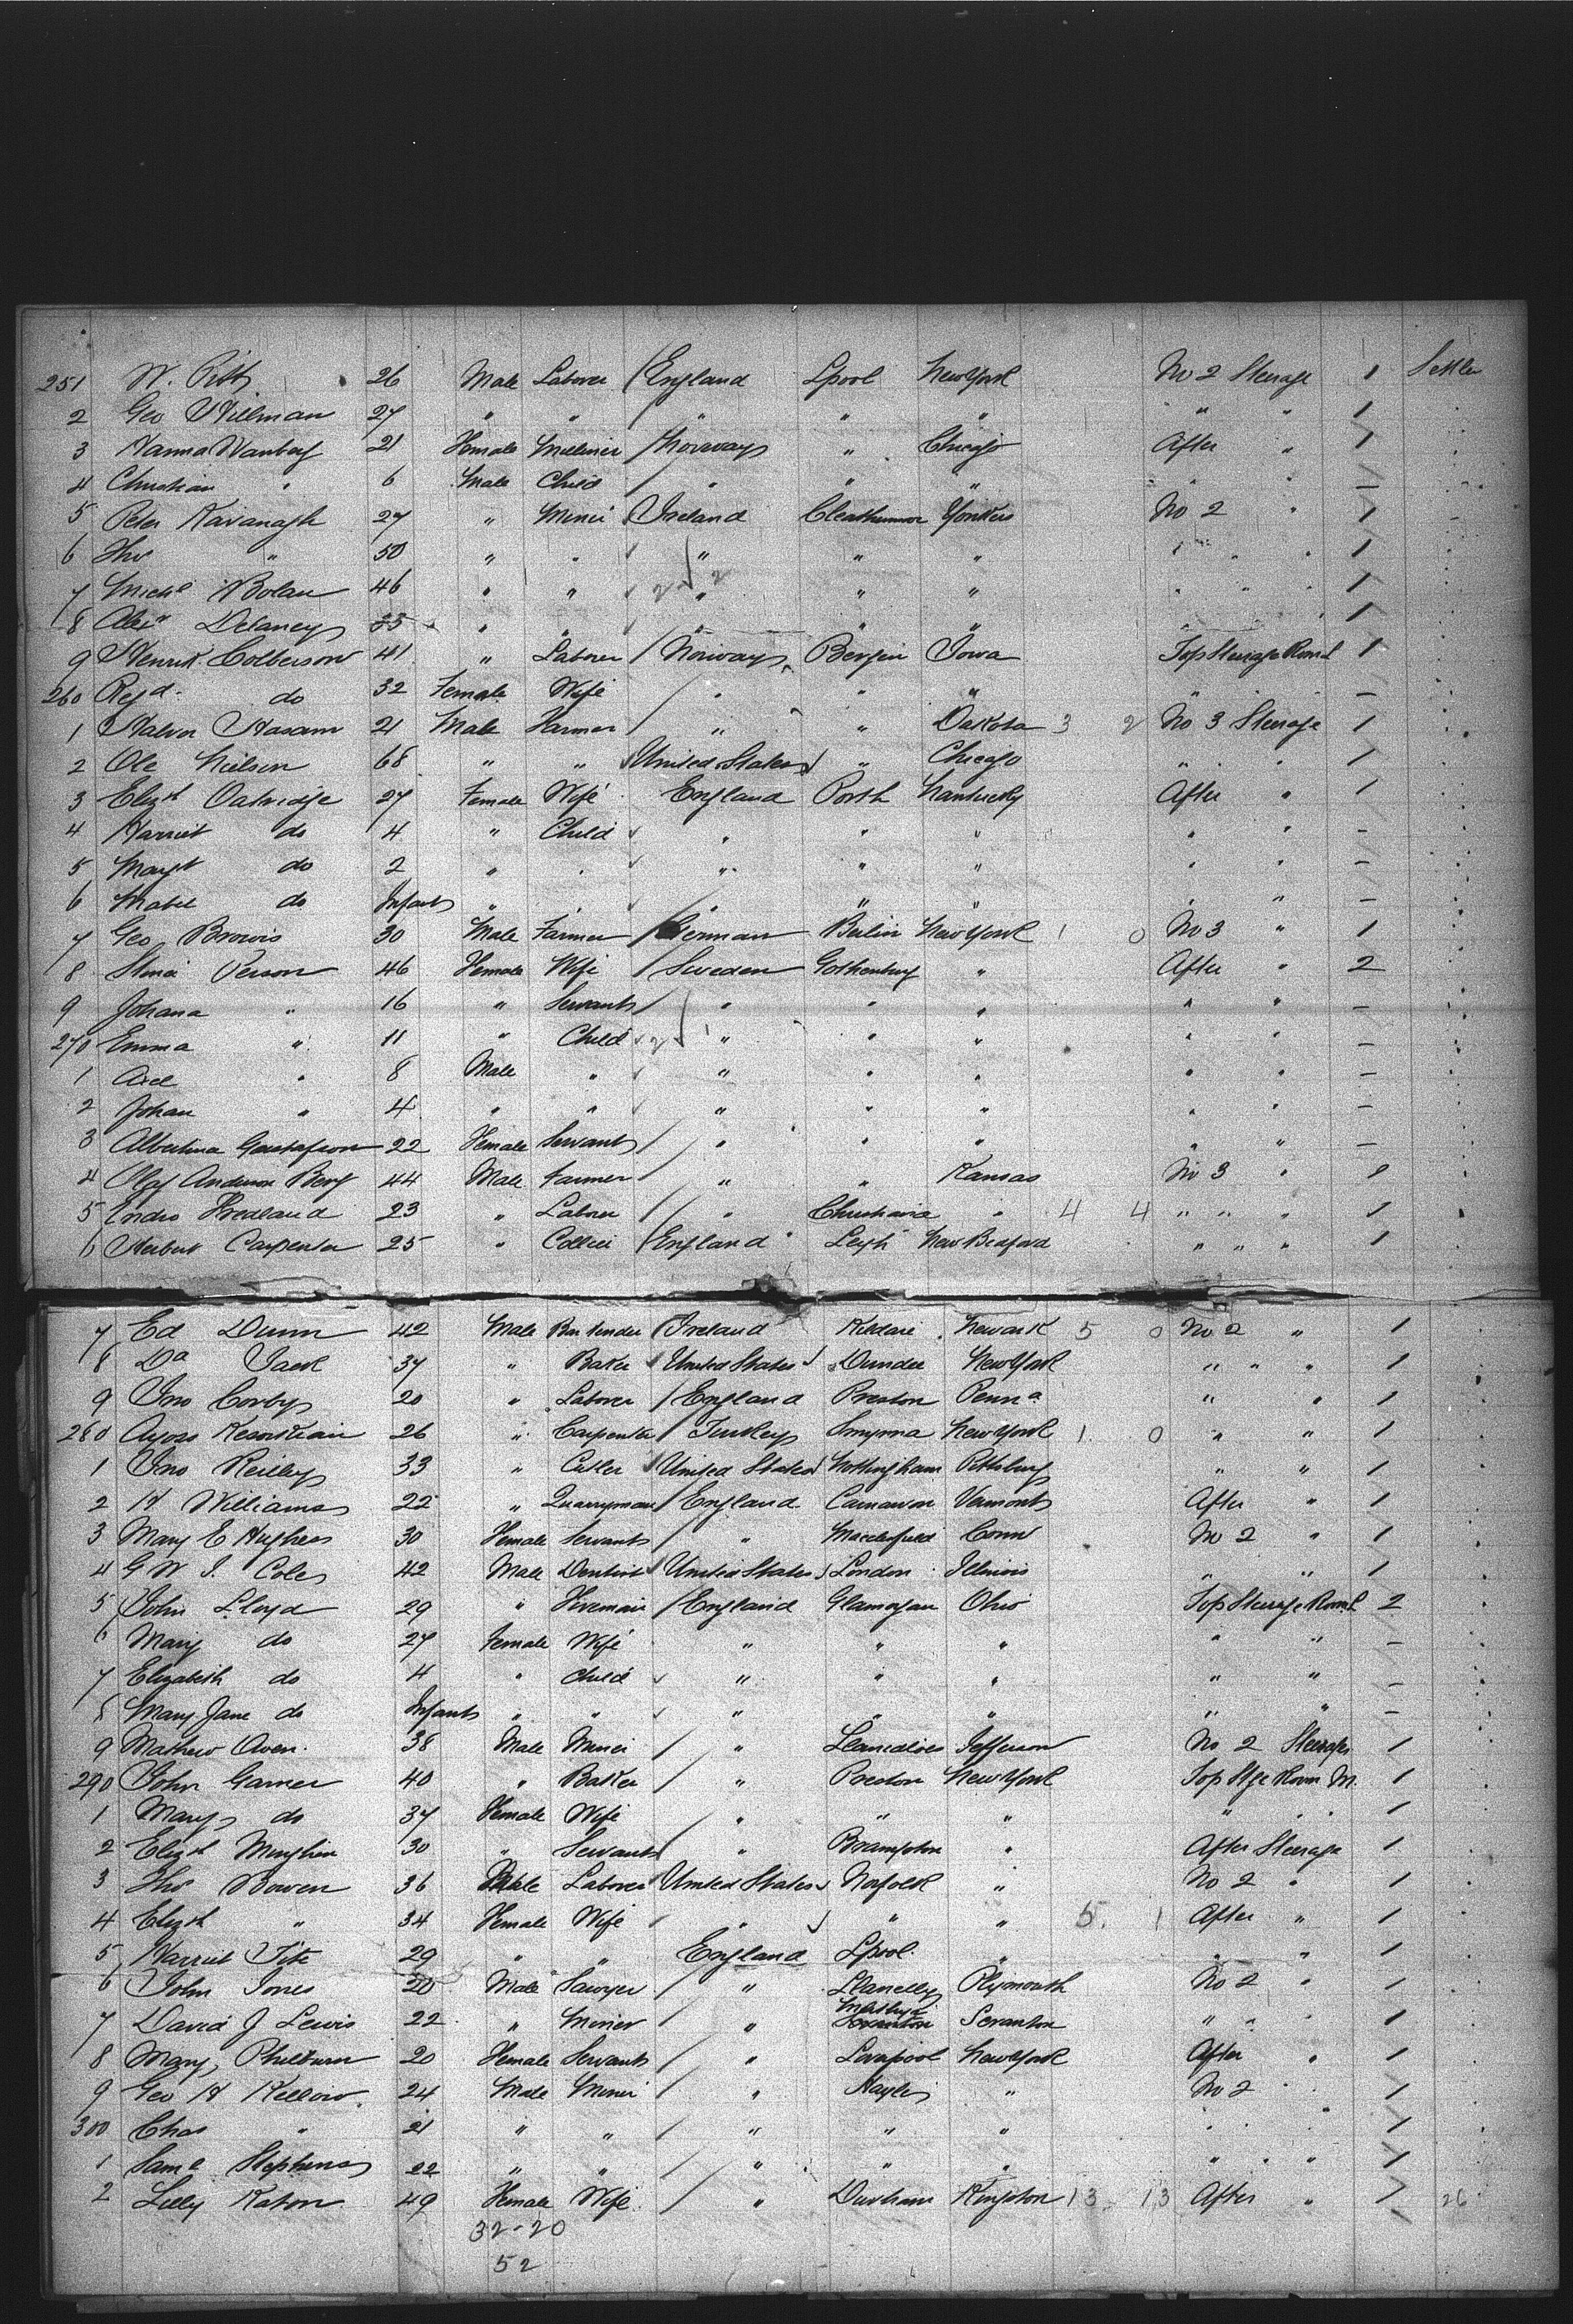 251 W. Pitt 26 Male Laborer England Lpool New York No 2 Steerage 1 Settler
2 Geo Hillman 27 " " " " " " " 1
3 Hanna Wanberg 21 Female Milliner Norway " Chicago After " 1
4 Christian " 6 Male Child " " " " " –
5 Peter Kavanagh 27 " Miner Ireland Yonkers No 2 " 1
6 Thos " 50 " " " " " " " 1
7 Michl Bolan 46 " " " " " " " 1
8 Delaney 35 " " " " " " " 1
9 Henrik Colberson 41 " Laborer Norway Bergin Iowa Top Steerage 1
260 Regd. do 32 Female Wife " " " " " –
1 Halvor Hasam 21 Male Farmer " " Dakota 3 2 No 3 Steerage 1
2 Ole Nielsen 68 " " United States " Chicago " " 1
3 Elizth Oatridge 27 Female Wife England Porth Kantucky After " 1
4 Harriet do 4 " Child " " " " " –
5 Margt do 2 " " " " " " " –
6 Mabel do Infant " " " " " " " –
7 Geo Browis 30 Male Farmer German Berlin New York 1 0 No 3 " 1
8 Person 46 Female Wife Sweden Gothenburg " After " 2
9 Johana " 16 " Servant " " " " " –
270 Emma " 11 " Child " " " " " –
1 Axel " 8 Male " " " " " " –
2 Johan " 4 " " " " " " " –
3 Albertina Gustafson 22 Female Servant " " " " " –
4 Olaf Anderson Berg 44 Male Farmer " " Kansas No 3 " 1
5 Endro Hredland 23 " Laborer " Christiania " 4 4 " " " 1
6 Herbert Carpenter 25 " Collier England Leigh New Bedford " " " 1
7 Ed Dunn 42 Male Bartender Ireland Kildare Newark 5 0 No 2 " 1
8 Da Jack 37 " Baker United States Dundee New York " " " 1
9 Jno Corby 20 " Laborer England Preston Penna " " 1
280 26 " Carpenter Turkey Smyrna New York 1 0 " " 1
1 Jno Reilley 33 " Cutler United States Nottingham Pittsburg " " 1
2 H Williams 22 " Quarryman England Carnarvon Vermont After " 1
3 Mary E Hughes 30 Female Servant " Macclesfield Conn No 2 " 1
4 G W J. Coles 42 Male Dentist United States London Illinois " " 1
5 John Lloyd 29 " Fireman England Glamorgan Ohio Top Steerage 2
6 Mary do 27 Female Wife " " " " " –
7 Elizabeth do 4 " Child " " " " " –
8 Mary Jane do Infant " " " " " " " –
9 Mathew Owen 38 Male Miner " Llanidloes Jefferson No 2 Steerage 1
290 John Garner 40 " Baker " Preston New York Top Stge Room M. 1
1 Mary do 37 Female Wife " " " " " 1
2 Elizth 30 " Servant " Brampton " After Steerage 1
3 Thos Bowen 36 Male Laborer United States Norfolk " No 2 " 1
4 Elizth " 34 Female Wife " " " 5 1 After " 1
5 Harriet Tite 29 " " England Lpool " " " 1
6 John Jones 20 Male Sawyer " Llanelly Plymouth No 2 " 1
7 David J Lewis 22 " Miner " Scranton " " 1
8 Mary Philburn 20 Female Servant " Liverpool New York After " 1
9 Geo H Kellow 24 Male Miner " " No 2 " 1
300 Chas " 21 " " " " " " " 1
1 Saml Stephens 22 " " " " " " " 1
2 Lilly Katon 49 Female Wife " Durham Kingston 13 13 After " 1 26
32-20
52